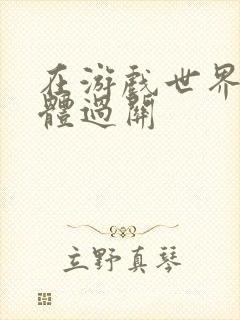 在游戲世界
體過關
立野真琴